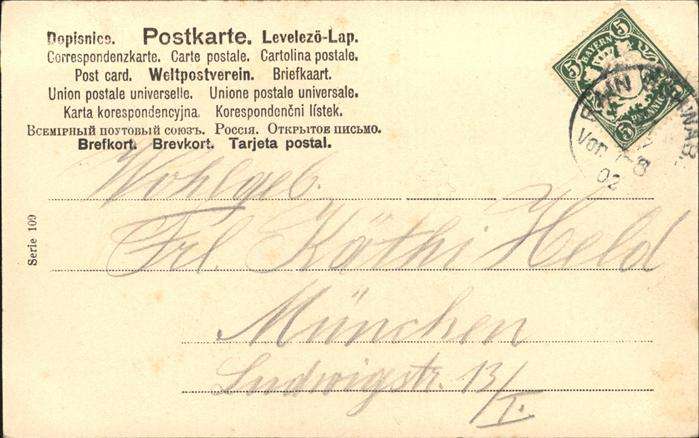 Dopisnice. Postkarte. Levelezö-Lap.
Correspondenzkarte. Carte postale. Cartolina postale.
Post card. Weltpostverein. Briefkaart.
Union postale universelle. Unione postale universale.
Karta korespondencyjna. Korespondenčni lístek.
Всемірный поутовый союзъ. Россія. Открытое письмо.
Brefkort. Brevkort. Tarjeta postal.
5 BAYERN 5
5 PFENNIG 5
Vor.
02
Serie 109
Wohlgeb.
Frl. Käthi Held
München
Ludwigstr. 13/I.